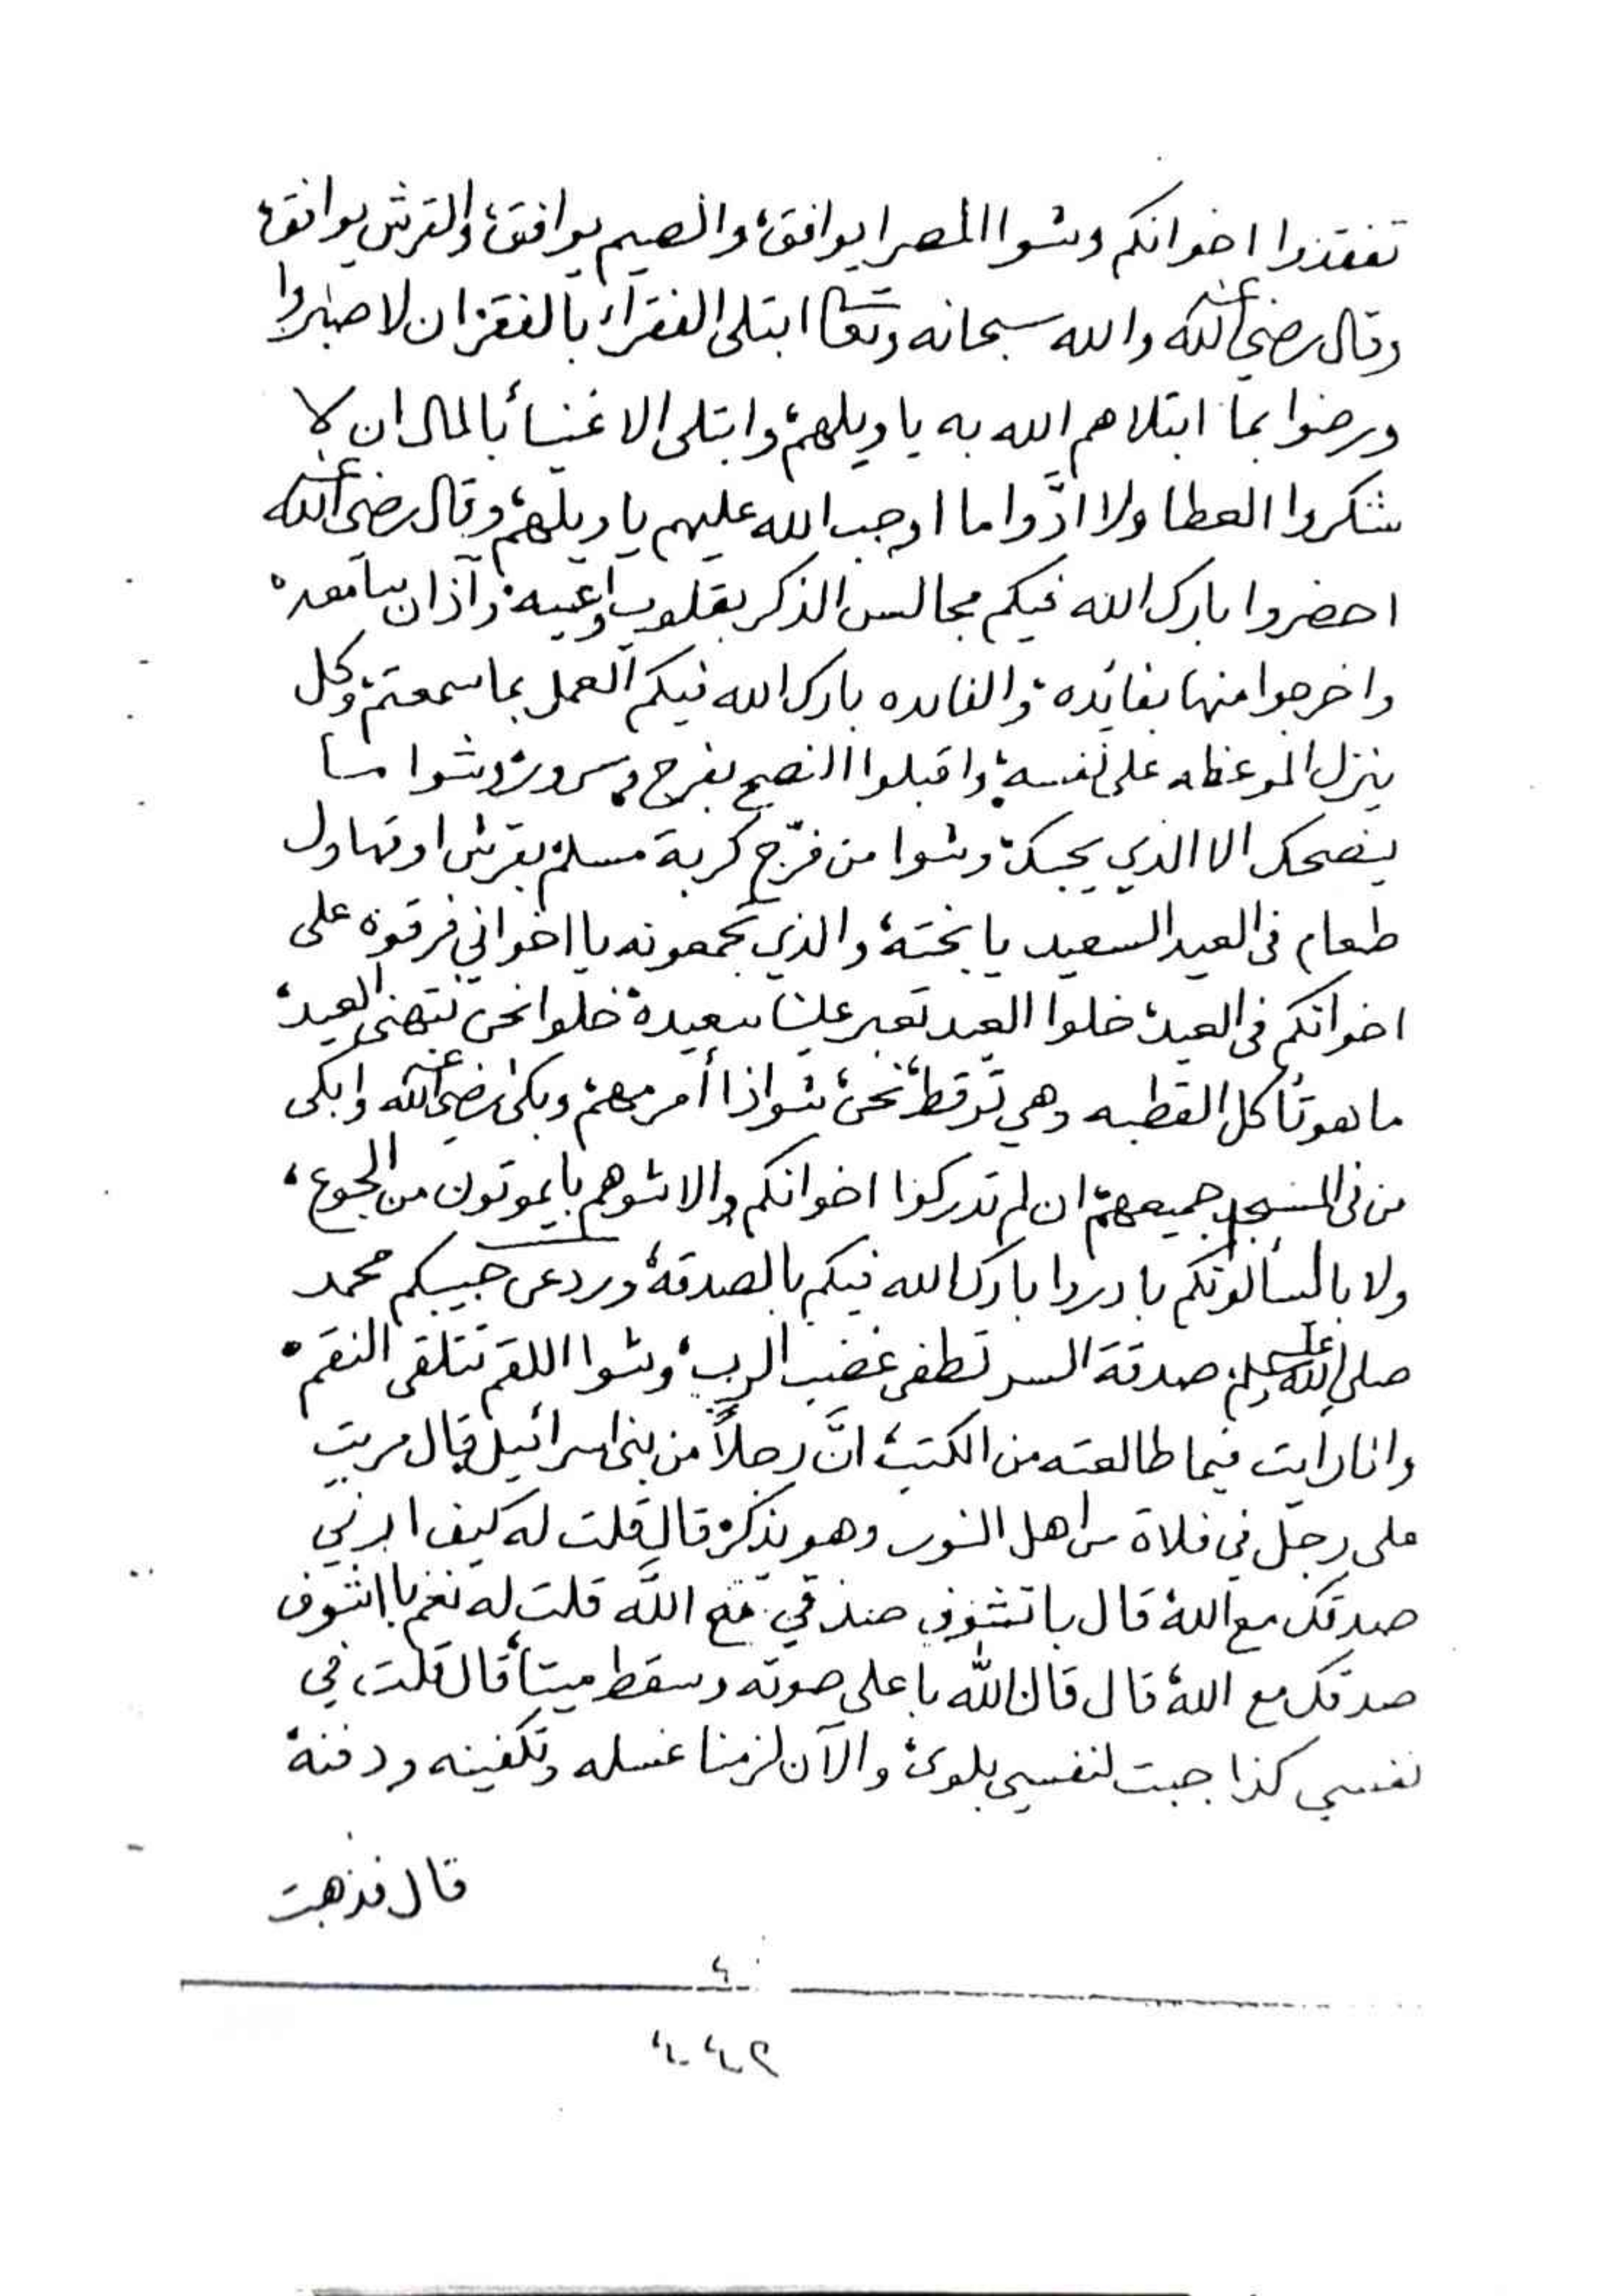 تفقدوا اخوانكم وشوا المصرا يوافق، والصيم يوافق، والقرش يوافق،
وقال رضي الله عنه والله سبحانه وتعالى ابتلى الفقراء بالفقر ان لا صبروا
ورضوا بما ابتلاهم الله به يا ويلهم، وابتلى الاغنيأ بالمال ان لا
شكروا العطا ولا ادَّوا ما اوجب الله عليهم يا ويلهم، وقال رضي الله عنه
احضروا بارك الله فيكم مجالس الذكر بقلوب واعيه، وآذان سامعه،
واخرجوا منها بفائده، والفائده بارك الله فيكم العمل بما سمعتم، وكل
ينزل الموعظه على نفسه، واقبلوا النصح بفرح وسرور، وشوا ما
ينصحك الا الذي يحبك، وشوا من فرّج كربة مسلم، بقرش او قهاول
طعام فى العيد السعيد يا بخته، والذي تجمعونه يا اخواني فرقوه على
اخوانكم فى العيد، خلوا العيد تعبر علينا سعيدة، خلوا نحن نتهنى العيد،
ما هو تأكل القطبه وهي ترقط، نحن، شوا ذا أمر مهم، وبكى رضي الله عنه وابكى
من فى المسجد جميعهم، ان لم تدركوا اخوانكم، والا شوهم با يموتون من الجوع،
ولا با يسألونكم بادروا بارك الله فيكم بالصدقة، ورد عن حبيبكم محمد
صلى الله عليه وسلم، صدقة السر تطفى غضب الرب، وشوا اللقم تتلقى النقم،
وانا رايت فيما طالعته من الكتب، انَّ رجلاً من بنى اسرائيل قال مريت
على رجل في فلاة من اهل النور وهو يذكر، قال قلت له كيف ابرني
صدقك مع الله، قال با تشوف صدقي مع الله قلت له نعم با اشوف
صدقك مع الله، قال قال الله باعلى صوته وسقط ميتاً، قال قلت، في
نفسي كذا جبت لنفسي بلوى، والآن لزمنا غسله وتكفينه ودفنه،
قال فذهبت